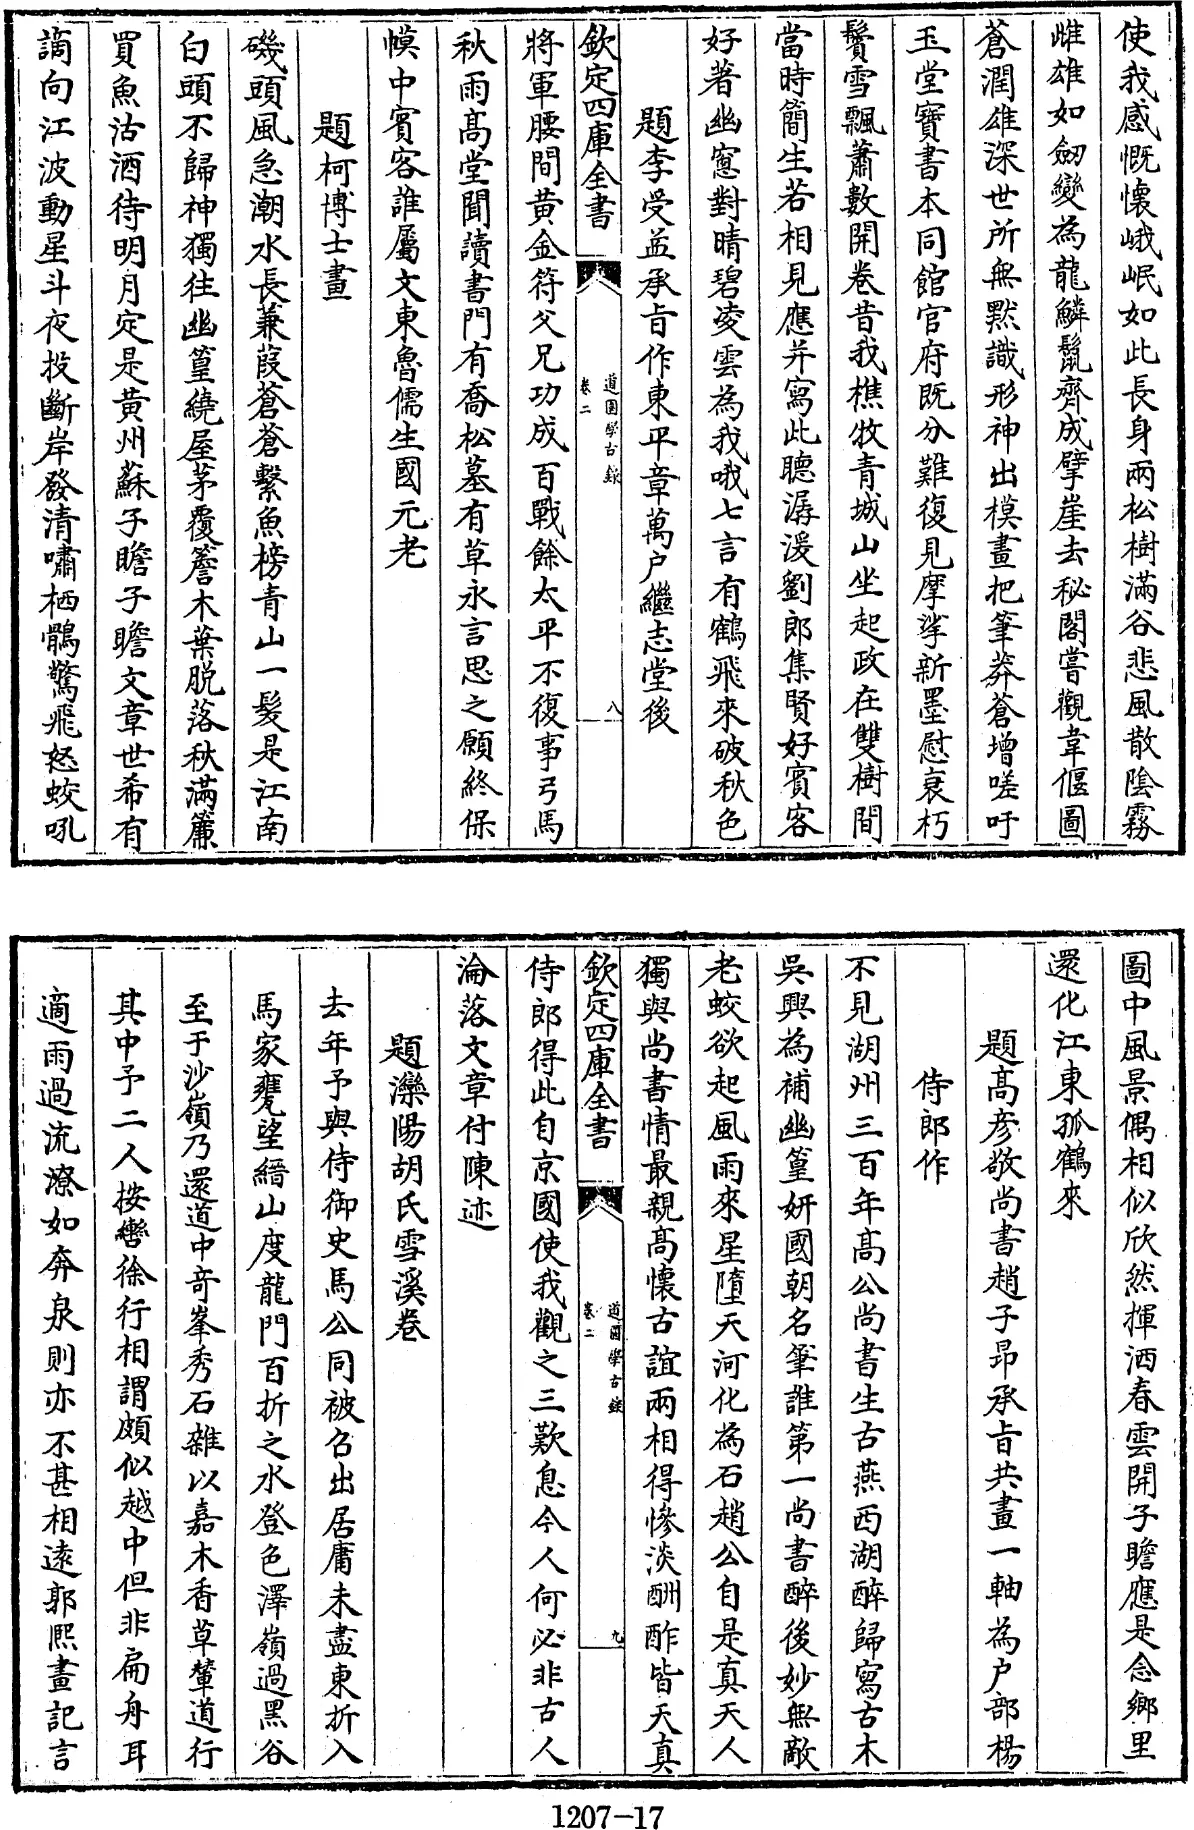 使我感慨懷峨岷如此長身兩松樹滿谷悲風散陰霧
雌雄如劒變為龍鱗鬛齊成擘崖去秘閣嘗觀韋偃圖
蒼潤雄深世所無黙識形神出模畫把筆莽蒼增嗟吁
玉堂寶書本同館官府既分難復見摩挲新墨慰衰朽
鬢雪飄蕭數開卷昔我樵牧青城山坐起政在雙樹間
當時簡生若相見應并寫此聴潺湲劉郎集賢好賓客
好著幽窻對晴碧凌雲為我哦七言有鶴飛來破秋色
題李受益承旨作東平章萬户繼志堂後
欽定四庫全書
道園學古錄
卷二
八
將軍腰間黄金符父兄功成百戰餘太平不復事弓馬
秋雨髙堂聞讀書門有喬松墓有草永言思之願終保
幙中賓客誰屬文東魯儒生國元老
題柯博士畫
磯頭風急潮水長蒹葭蒼蒼繫魚榜青山一髮是江南
白頭不歸神獨往幽篁繞屋茅覆簷木葉脱落秋滿簾
買魚沽酒待明月定是黄州蘇子瞻子瞻文章世希有
謫向江波動星斗夜投斷岸發清嘯栖鶻驚飛怒蛟吼
圖中風景偶相似欣然揮洒春雲開子瞻應是念鄉里
還化江東孤鶴來
題髙彦敬尚書趙子昂承旨共畫一軸為户部楊
侍郎作
不見湖州三百年髙公尚書生古燕西湖醉歸寫古木
吳興為補幽篁妍國朝名筆誰第一尚書醉後妙無敵
老蛟欲起風雨來星墮天河化為石趙公自是真天人
獨與尚書情最親髙懷古誼兩相得慘淡酬酢皆天真
欽定四庫全書
道園學古錄
卷二
九
侍郎得此自京國使我觀之三歎息今人何必非古人
淪落文章付陳迹
題灤陽胡氏雪溪卷
去年予與侍御史馬公同被召出居庸未盡東折入
馬家甕望縉山度龍門百折之水登色澤嶺過黑谷
至于沙嶺乃還道中奇峯秀石雜以嘉木香草輦道行
其中予二人按轡徐行相謂頗似越中但非扁舟耳
適雨過流潦如奔泉則亦不甚相逺郭熙畫記言
1207-17